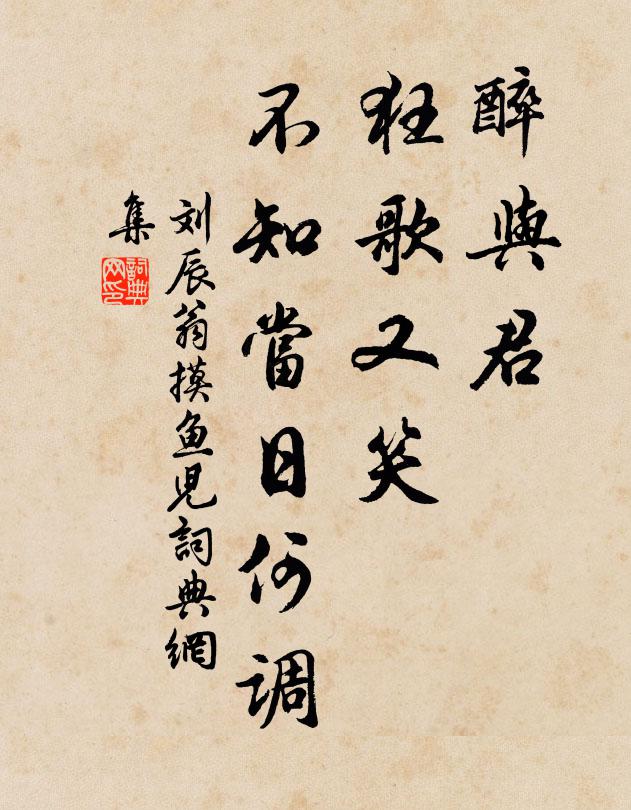 醉與君
狂歌又笑
不知當日何調
刘辰翁摸鱼児詞典網
集
詞典网印